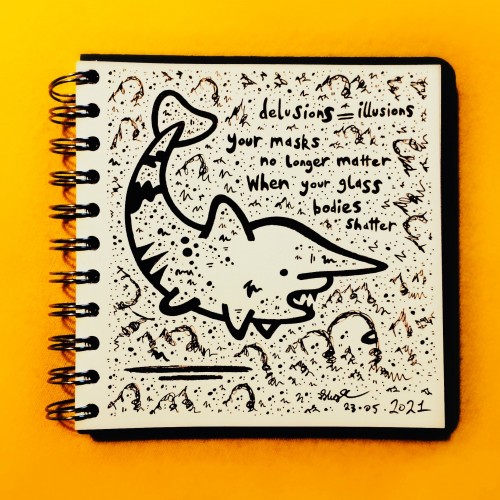 delusions = illusions
your masks
no longer matter
When your glass
bodies
shatter
23.05.2021